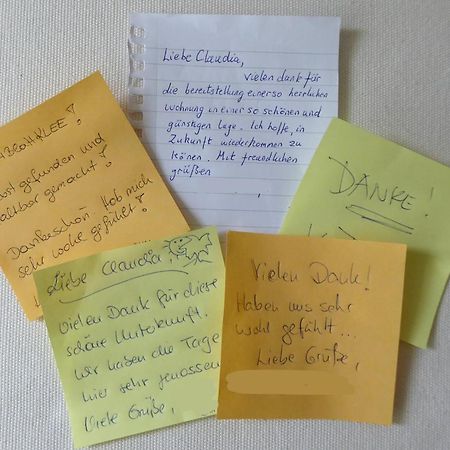 Liebe Claudia,
vielen dank für
die bereitstellung einer so herrlichen
wohnung in einer so schönen und
günstigen lage. Ich hoffe, in
Zukunft wiederkommen zu
könen. Mit freundlichen
grüßen
KLEE!
gefunden und
haltbar gemacht!
Dankeschön. Hab mich
sehr wohl gefühlt!
DANKE!
Liebe Claudia
Vielen Dank für diese
schöne Unterkunft.
Wir haben die Tage
hier sehr genossen
Viele Grüße,
Vielen Dank!
Haben uns sehr
wohl gefühlt...
Liebe Grüße,